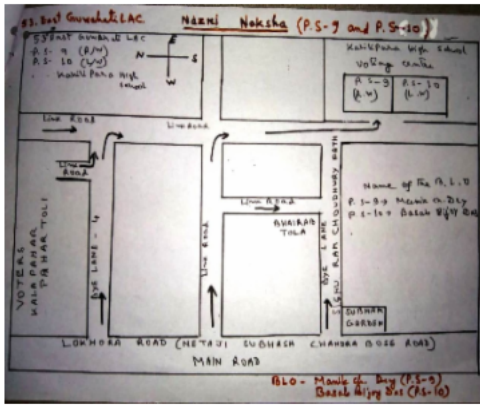 53. East Guwahati LAC.
Nazri Naksha (P.S-9 and P.S-10)
53 East Guwahati LAC
P.S- 9 (R/W)
P.S- 10 (L/W)
Kalikapara High
School
E
N S
W
Kalikapara High School
Voting centre
P.S-9
(R.W)
P.S-10
(L.W)
Link Road
Link Road
Link
Road
VOTERS
KALAPAHAR
PAHAR TOLI
BYE LANE - 4
Link Road
Link Road
BHAIRAB
TOLA
BYE LANE
RAM CHOUDHURY PATH
Name of the B.L.O
P.S-9 → Manik Ch. Dey
P.S-10 →
SUBHAM
GARDEN
LOKHORA ROAD (NETAJI SUBHASH CHANDRA BOSE ROAD)
MAIN ROAD
BLO - Manik Ch. Dey (P.S-9)
Das (P.S-10)